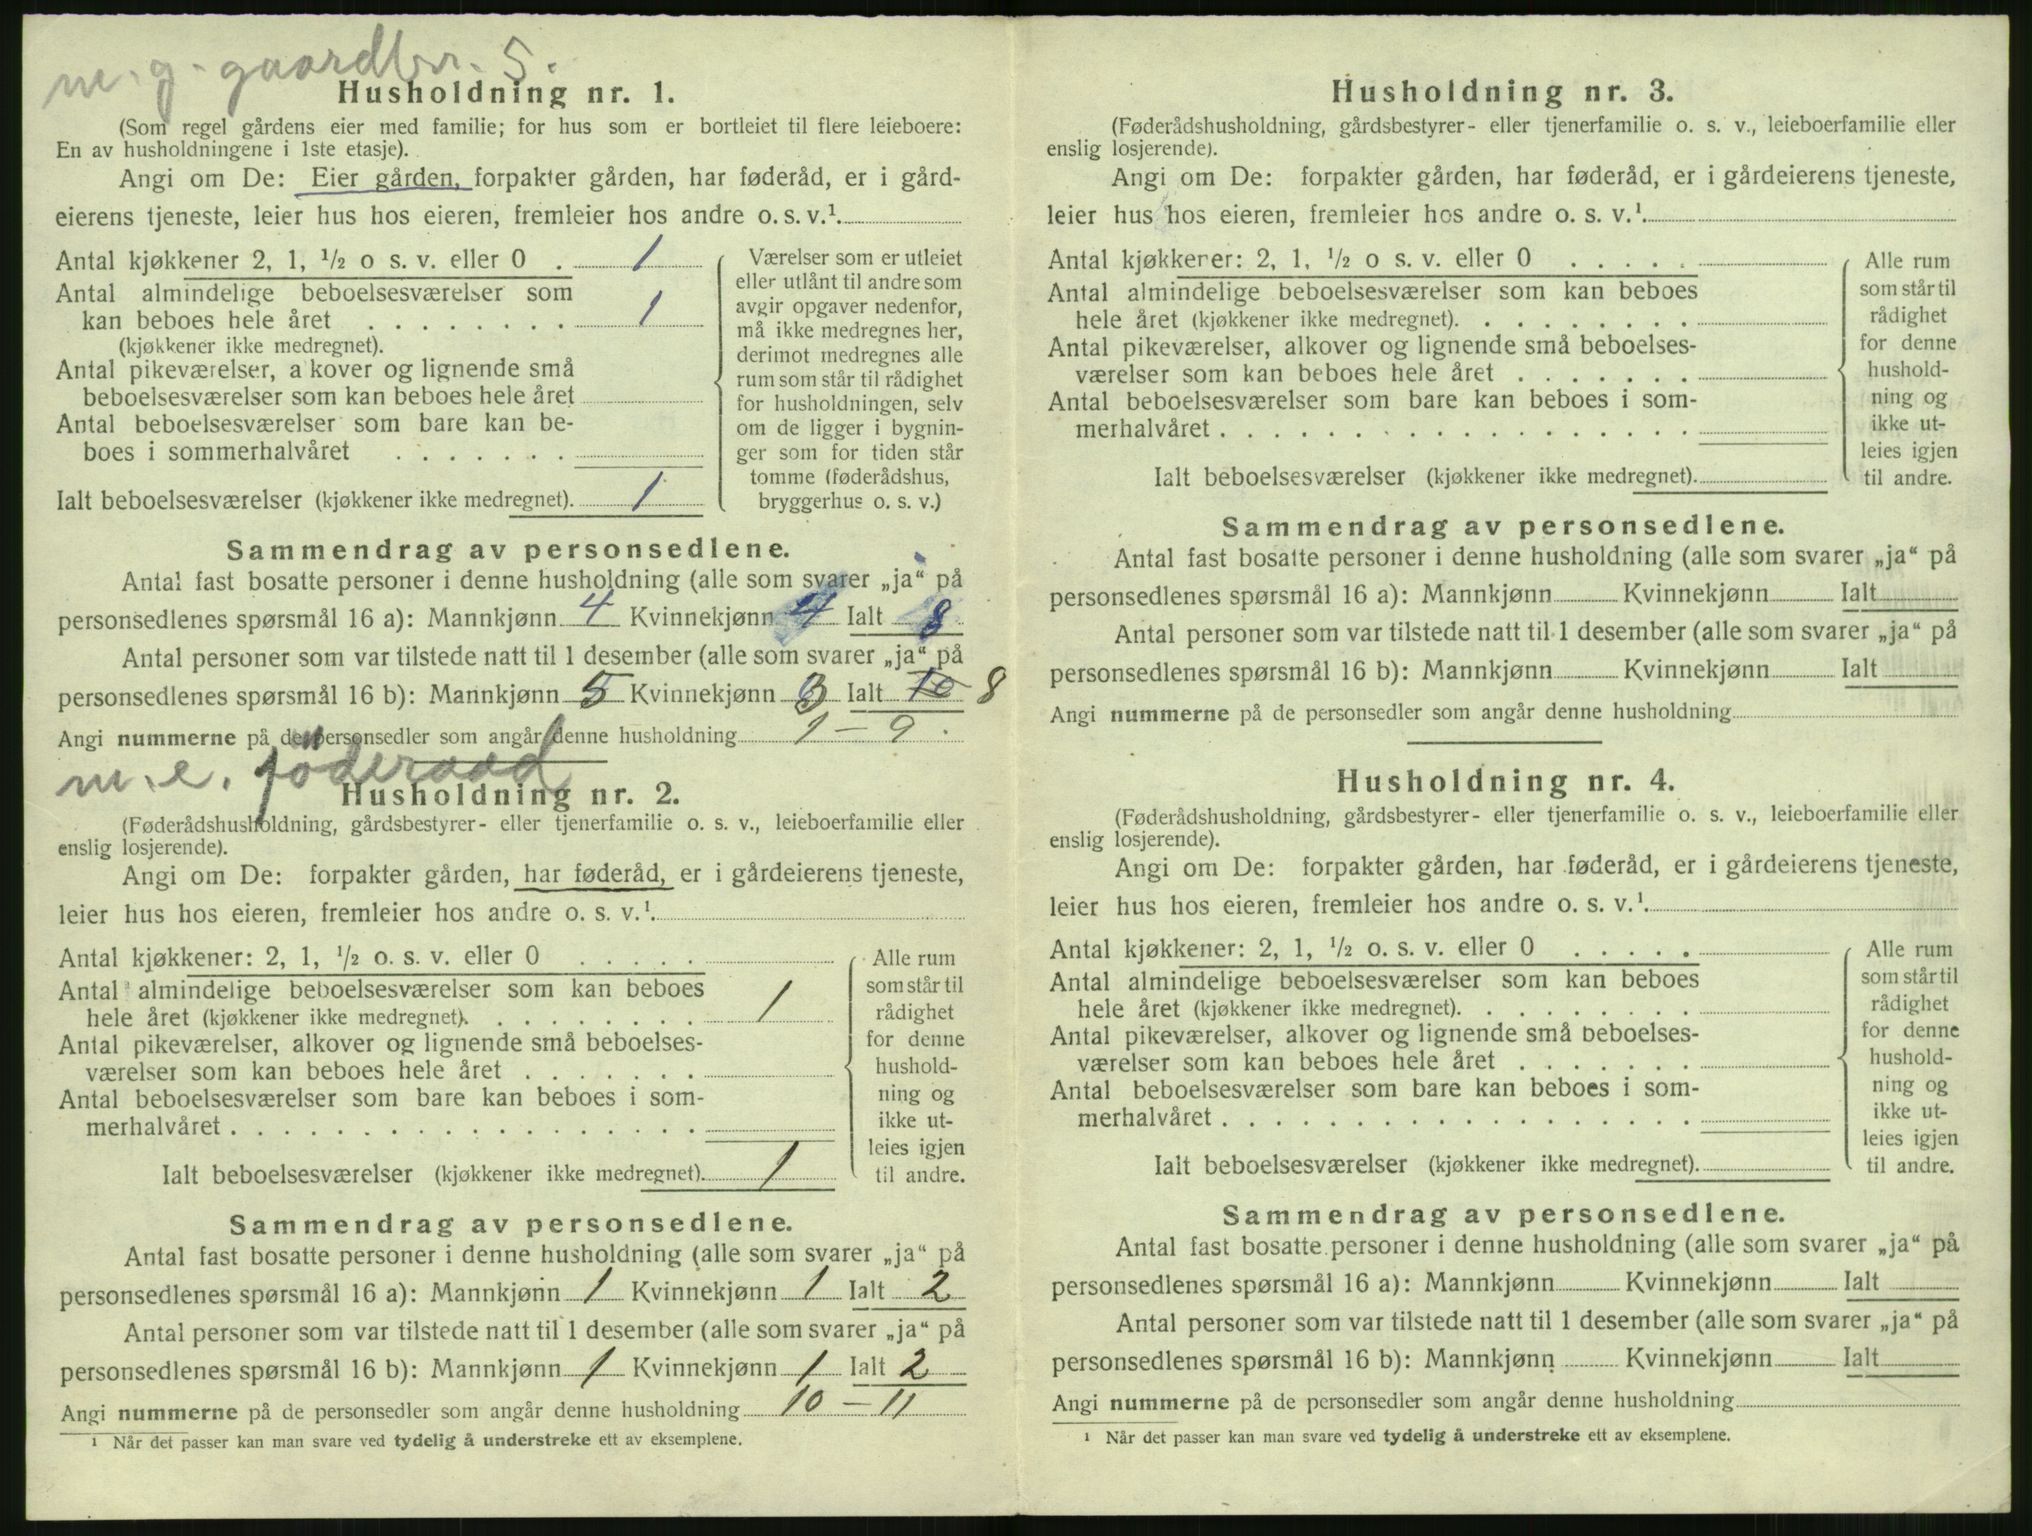 m. g. gaardbr. 5.
Husholdning nr. 1.
(Som regel gårdens eier med familie; for hus som er bortleiet til flere leieboere:
En av husholdningene i 1ste etasje).
Angi om De: Eier gården, forpakter gården, har føderåd, er i gård-
eierens tjeneste, leier hus hos eieren, fremleier hos andre o. s. v.¹
Antal kjøkkener 2, 1, ½ o s. v. eller 0 . 1
Antal almindelige beboelsesværelser som
kan beboes hele året . . . . . . . . 1
(kjøkkener ikke medregnet).
Antal pikeværelser, alkover og lignende små
beboelsesværelser som kan beboes hele året
Antal beboelsesværelser som bare kan be-
boes i sommerhalvåret . . . . . . .
Ialt beboelsesværelser (kjøkkener ikke medregnet). 1
Værelser som er utleiet
eller utlånt til andre som
avgir opgaver nedenfor,
må ikke medregnes her,
derimot medregnes alle
rum som står til rådighet
for husholdningen, selv
om de ligger i bygnin-
ger som for tiden står
tomme (føderådshus,
bryggerhus o. s. v.)
Sammendrag av personsedlene.
Antal fast bosatte personer i denne husholdning (alle som svarer „ja“ på
personsedlenes spørsmål 16 a): Mannkjønn 4 Kvinnekjønn 4 Ialt 8
Antal personer som var tilstede natt til 1 desember (alle som svarer „ja“ på
personsedlenes spørsmål 16 b): Mannkjønn 5 Kvinnekjønn 3 Ialt 10 8
Angi nummerne på de personsedler som angår denne husholdning 1 — 9.
m. e. föderaad
Husholdning nr. 2.
(Føderådshusholdning, gårdsbestyrer- eller tjenerfamilie o. s. v., leieboerfamilie eller
enslig losjerende).
Angi om De: forpakter gården, har føderåd, er i gårdeierens tjeneste,
leier hus hos eieren, fremleier hos andre o. s. v.¹
Antal kjøkkener: 2, 1, ½ o. s. v. eller 0 . . . . .
Antal almindelige beboelsesværelser som kan beboes
hele året (kjøkkener ikke medregnet). . . . . . . . . 1
Antal pikeværelser, alkover og lignende små beboelses-
værelser som kan beboes hele året . . . . . . .
Antal beboelsesværelser som bare kan beboes i som-
merhalvåret . . . . . . . . . . . . . . . . . .
Ialt beboelsesværelser (kjøkkener ikke medregnet). 1
Alle rum
som står til
rådighet
for denne
hushold-
ning og
ikke ut-
leies igjen
til andre.
Sammendrag av personsedlene.
Antal fast bosatte personer i denne husholdning (alle som svarer „ja“ på
personsedlenes spørsmål 16 a): Mannkjønn 1 Kvinnekjønn 1 Ialt 2
Antal personer som var tilstede natt til 1 desember (alle som svarer „ja“ på
personsedlenes spørsmål 16 b): Mannkjønn 1 Kvinnekjønn 1 Ialt 2
Angi nummerne på de personsedler som angår denne husholdning 10 — 11
¹ Når det passer kan man svare ved tydelig å understreke ett av eksemplene.
Husholdning nr. 3.
(Føderådshusholdning, gårdsbestyrer- eller tjenerfamilie o. s. v., leieboerfamilie eller
enslig losjerende).
Angi om De: forpakter gården, har føderåd, er i gårdeierens tjeneste,
leier hus hos eieren, fremleier hos andre o. s. v.¹
Antal kjøkkener: 2, 1, ½ o s. v. eller 0 . . . . .
Antal almindelige beboelsesværelser som kan beboes
hele året (kjøkkener ikke medregnet). . . . . . . . .
Antal pikeværelser, alkover og lignende små beboelses-
værelser som kan beboes hele året . . . . . . .
Antal beboelsesværelser som bare kan beboes i som-
merhalvåret . . . . . . . . . . . . . . . . . .
Ialt beboelsesværelser (kjøkkener ikke medregnet).
Alle rum
som står til
rådighet
for denne
hushold-
ning og
ikke ut-
leies igjen
til andre.
Sammendrag av personsedlene.
Antal fast bosatte personer i denne husholdning (alle som svarer „ja“ på
personsedlenes spørsmål 16 a): Mannkjønn Kvinnekjønn Ialt
Antal personer som var tilstede natt til 1 desember (alle som svarer „ja“ på
personsedlenes spørsmål 16 b): Mannkjønn Kvinnekjønn Ialt
Angi nummerne på de personsedler som angår denne husholdning
Husholdning nr. 4.
(Føderådshusholdning, gårdsbestyrer- eller tjenerfamilie o. s. v., leieboerfamilie eller
enslig losjerende).
Angi om De: forpakter gården, har føderåd, er i gårdeierens tjeneste,
leier hus hos eieren, fremleier hos andre o. s. v.¹
Antal kjøkkener: 2, 1, ½ o. s. v. eller 0 . . . . .
Antal almindelige beboelsesværelser som kan beboes
hele året (kjøkkener ikke medregnet). . . . . . . . .
Antal pikeværelser, alkover og lignende små beboelses-
værelser som kan beboes hele året . . . . . . .
Antal beboelsesværelser som bare kan beboes i som-
merhalvåret . . . . . . . . . . . . . . . . . .
Ialt beboelsesværelser (kjøkkener ikke medregnet).
Alle rum
som står til
rådighet
for denne
hushold-
ning og
ikke ut-
leies igjen
til andre.
Sammendrag av personsedlene.
Antal fast bosatte personer i denne husholdning (alle som svarer „ja“ på
personsedlenes spørsmål 16 a): Mannkjønn Kvinnekjønn Ialt
Antal personer som var tilstede natt til 1 desember (alle som svarer „ja“ på
personsedlenes spørsmål 16 b): Mannkjønn Kvinnekjønn Ialt
Angi nummerne på de personsedler som angår denne husholdning
¹ Når det passer kan man svare ved tydelig å understreke ett av eksemplene.